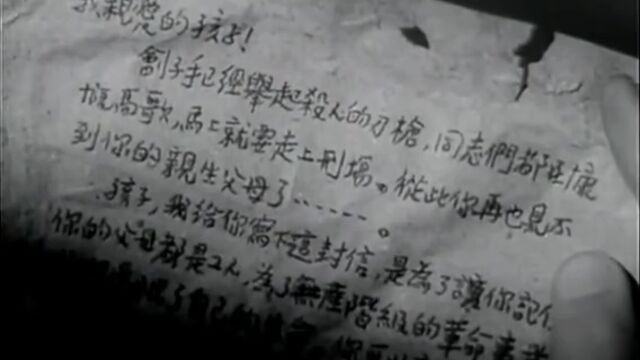 我親愛的孩子!
劊子手已經舉起殺人的刀槍,同志們都在慷
慨高歌,馬上就要走上刑場。從此你再也見不
到你的親生父母了……。
孩子,我给你寫下這封信,是為了讓你記住
你的父母都是工人,為了無產階級的革命事
了自己的